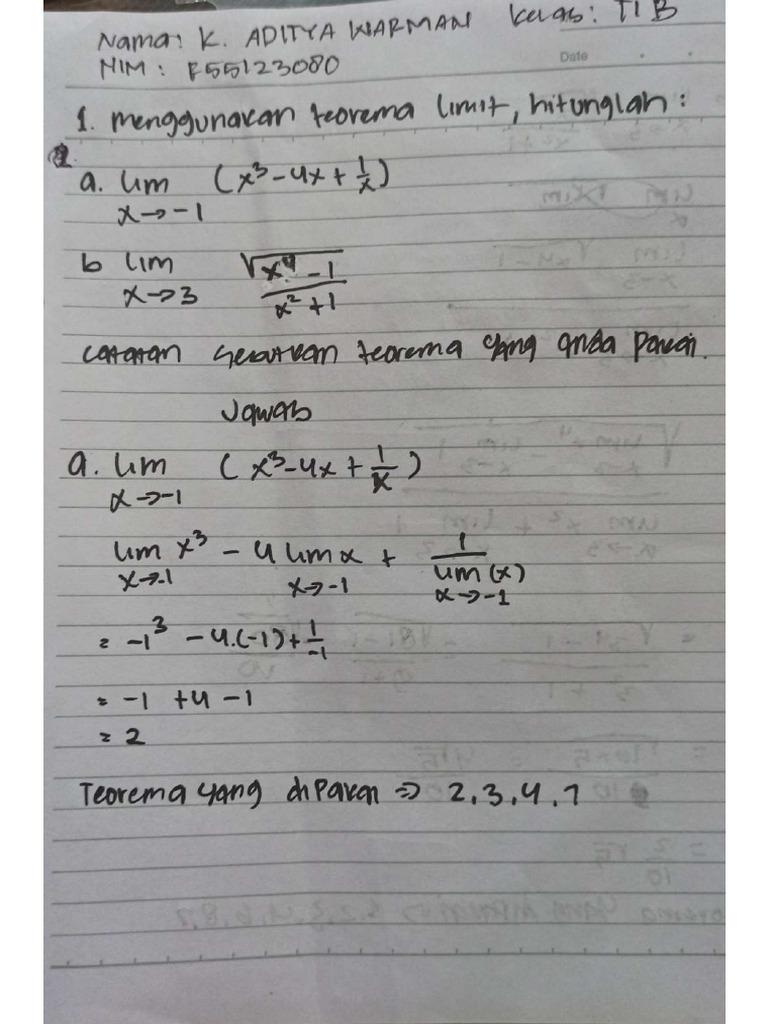 Nama: K. ADITYA WARMAN Kelas: TI B
NIM : F55123080
Date
1. menggunakan teorema limit, hitunglah :
a. lim (x³ - 4x + 1/x)
x → -1
b lim √(x⁴ - 1)
x → 3 x² + 1
catatan sebutkan teorema yang anda pakai.
Jawab
a. lim (x³ - 4x + 1/x)
x → -1
lim x³ - 4 lim x + 1/lim (x)
x → -1 x → -1 x → -1
= -1³ - 4.(-1) + 1/-1
= -1 + 4 - 1
= 2
Teorema yang dipakai ⇒ 2, 3, 4, 7